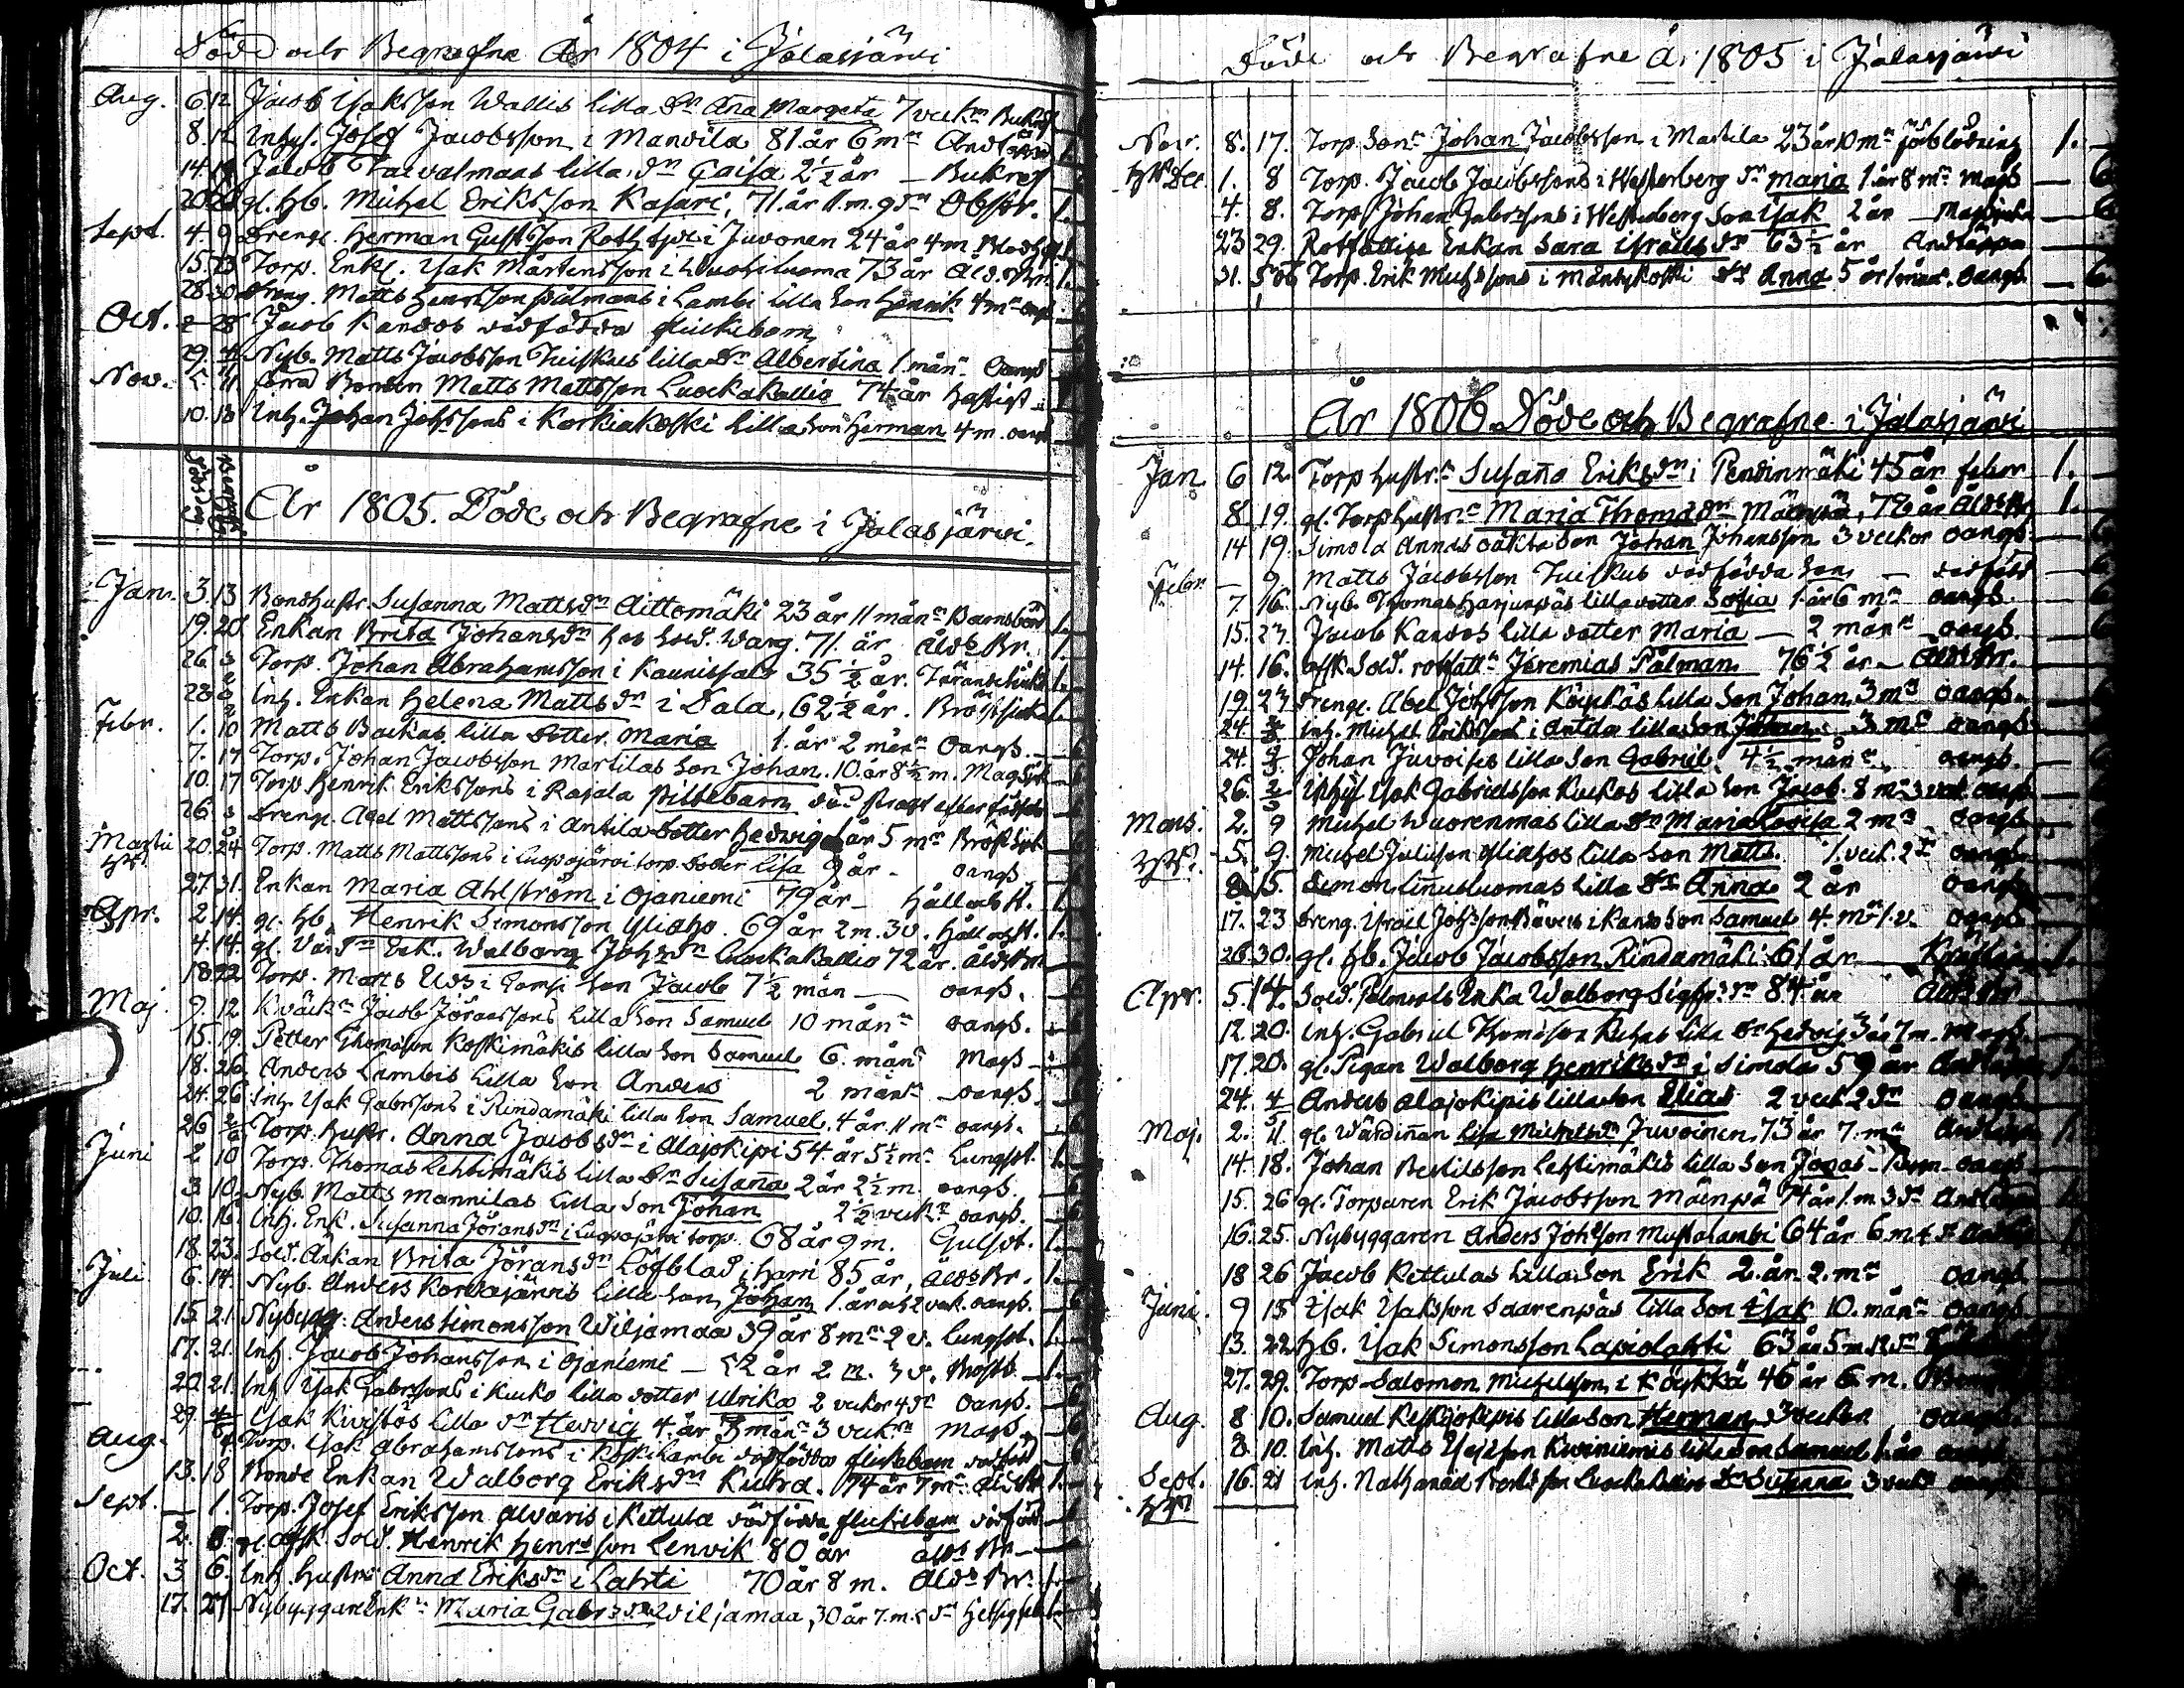 Döde och Begrafne År 1804 i Jalasjärvi
Aug. 6 12 Jacob Isaksson Wallis lilla dr Aña Margeta 7 veckr Bukref
8. 12 Inhys. Josef Jacobsson i Mandila 81 år 6 mr
14. 19 Jacob Taivalmaas lilla dr Caisa 2 1/2 år — Bukref
20 26 gl. Hb. Michel Eriksson Kasari, 71. år 11. m. 9 dr Obstr. 1.
Sept. 4. 9 Drengen Herman Gustsson Roth i Juvonen 24 år 4 m.
15. 23 Torp. Enkl. Isak Mårtensson i 73 år Åld. Br. 1.
28. 30 Dreng. Matts Henrsson Pålmans i Lambi lilla Son Henrik 4 mr oangs
Oct. 28 Jacob Kandos dödfödda flickebarn
29. 4/11 Nyb. Matts Jacobsson Tuiskus lilla dr Albertina 1 månr Oangs
Nov. 5. 11 förra Bonden Matts Mattsson Luockakallio 74 år hastigt
10. 18 Inh. Johan Johssons i Korkiakoski lilla Son Herman 4 m. oangs
År 1805. Döde och Begrafne i Jalasjärvi.
Jan. 3. 13 Bondhustr. Susanna Mattsdr Aittomäki 23 år 11 månr Barnsbörd 1.
19. 20 Enkan Brita Johansdr hos Sold. Warg. 71. år Ålds Br. 1.
26. 3/2 Torp. Johan Abrahamsson i Kaunissalo 35 1/2 år. 1.
28. 3/2 Inh. Enkan Helena Mattsdr i Dala, 62 1/2 år. Bröstsiuka 1.
Febr. 1. 10 Matts Backas lilla Dotter Maria 1. år 2 månr Oangs. —
7. 17 Torp. Johan Jacobsson Martilas Son Johan. 10. år 8 1/2 m. Magsiuk
10. 17 Torp Henrik Erikssons i Rasala Piltebarn död straxt efter födsel
26. 3 Drengen Abel Mattssons i Antila Dotter Hedvig 1 år 5 mr Bröstsiuk
Martii 20. 24 Torp. Matts Mattssons i Luopajärvi torp. Dotter Lisa 9 år — oangs
27. 31. Enkan Maria Ahlström i Ojaniemi 79 år — Håll och St. 1.
Apr. 2. 14. gl. Hb. Henrik Simonsson Yliaho. 69 år 2 m. 3 v. Håll och St. 1.
4. 14. gl. Värdn Enk. Walborg Johsdr Luockakallio 72 år. Ålds Br.
18. 22 Torp. Matts Uds i Son Jacob 7 1/2 mån — oangs.
Maj 9. 12 Jacob Jöranssons lilla Son Samuel 10 månr oangs.
15. 19. Petter Thomasson Koskimäkis lilla Son Samuel 6. månr Mags —
18. 26 Anders Lambis lilla Son Anders 2 månr — oangs.
24. 26 Inh. Isak Gabrssons i Rindamäki lilla Son Samuel. 4 år. 11 mr oangs.
26 2/6 Torp. hustr. Anna Jacobsdr i Alajokipi 54 år 5 1/2 mr Lungsot. 1.
Juni 2 10 Torp. Thomas Lehtimäkis lilla dr Susaña 2 år 2 1/2 m. oangs.
3. 10. Nyb. Matts Mannilas lilla Son Johan 2 1/2 veckr oangs.
10. 16. Inh. Enk. Susanna Jöransdr i Luopajärvi torp. 68 år 9 m. Gulsot. 1.
18. 23. Sold. Änkan Brita Jöransdr Löfblad i Harri 85 år, Ålds Br. 1.
Juli 6. 14. Nyb. Anders Korkajärvis lilla Son Johan 1. år och 2 veck. oangs.
15. 21. Nybygg. Anders Simonsson Wiljamaa 39 år 8 mr 2 v. Lungsot. 1.
17. 21. Inh. Jacob Johansson i Ojaniemi — 52 år 2 m. 3 v. Brostb 1.
20. 21. Inh. Isak Gabrssons i Kuko lilla dotter Ulrika 2 veckor 4 dr Oangs.
29. 4/8 Isak Kivistös lilla dr Hedvig 4. år 3 månr 3 veckr Mags
Aug. 4. Torp. Isak Abrahamssons i Koskilambi dödfödda flickebarn dödfödt
13. 18 Bonde Enkan Walborg Eriksdr Kuhra. 74 år 7 mr Ålds Br. 1.
Sept. — 1. Torp. Josef Eriksson Alvaris i Kettula dödfödda flickebarn dödfödt
2. 8 gl. afsk. Sold. Henrik Henrsson Lenvik 80 år Ålds Br —
Oct. 3 6. Inh. hustrn Anna Eriksdr i Lahti 70 år 8 m. Ålds Br. 1.
17. 27 Nybyggare Enkn Maria Gabrsdr Wiljamaa, 30 år 7. m. 5 dr
Döde och Begrafne Åi 1805 i Jalasjärvi
Nov. 8. 17. Torp. Sonn Johan Jacobsson i Martila 23 år 10 mr förblödning 1. —
Dec. 1. 8 Torp. Jacob Jacobssons i Westerberg dr Maria 1. år 8 mr Mags — 6
4. 8. Torp. Johan Gabrssons i Westerberg Son Isak 2 år — Magsiuka — 6
23 29. Rotfattige Enkan Sara Israelsdr 63 1/2 år Andtäppa —
31. 5 06 Torp. Erik Michssons i Mäntykoski dr Anna 5 år 1 mån. oangs. — 6
År 1806. Döde och Begrafne i Jalasjärvi
Jan. 6 12. Torp hustrn Susaña Eriksdr i Pendinmäki 45 år feber 1. —
8. 19. gl. Torphustrn Maria Thomasdr Mäenpä, 76 år Ålds Br 1.
14 19. Simola Annas oäkta Son Johan Johansson 3 veckor oangs.
Febr. — 9. Matts Jacobsson Tuiskus dödfödda Son, — dödfödd
7. 16. Nyb. Thomas Harjunpäs lilla dotter Sofia 1. år 6 mr oangs.
15. 23. Jacob Kandos lilla dotter Maria — 2 månr — oangs.
14. 16. Afsk. Sold. rotfattn Jeremias Pålman 76 1/2 år — Ålds Br.
19. 23. Drengen Abel Johsson Köykkäs lilla Son Johan. 3 mr oangs.
24. 2/3 Inh. Michel Erikssons i Antila lilla Son Johan 3 mr oangs
24. 2/3 Johan Juvoises lilla Son Gabriel 4 1/2 månr oangs.
26. 2/3 Isak Gabrielsson Kuckos lilla Son Jacob. 8 mr 3 veck. oangs
Mars. 2. 9 Michel Wuorenmas lilla dr Maria Lovisa 2 mr oangs
5. 9. Michel Yliahos lilla Son Matts. 1. veck. 2 dr oangs
8. 15. Simon Liñuluomas lilla dr Anna 2 år oangs
17. 23 Dreng. Israel Johssons Son Samuel 4. mr 1. v. oangs
26. 30. gl. Hb. Jacob Jacobsson Rindamäki 61 år — 1.
Apr. 5. 14. Sold. Enka Walborg Sigfrsdr 84 år Ålds Br
12. 20. Inh. Gabriel Thomasson lilla dr Hedvig 3 år 7 m. Mags.
17. 20. gl. Pigan Walborg Henriksdr i Simola 59 år
24. 4/5 Anders Alajokipis lilla Son Elias 2 veck 2 dr oangs
Maj. 2. 11 gl. Wärdiñan Lisa Michelsdr Juvoinen, 73 år 7. mr 1.
14. 18. Johan Bertilsson Lehtimäkis lilla Son Jonas oangs
15. 26 gl. Torparen Erik Jacobsson Mäenpä 74 år 1. m 3 dr
16. 25. Nybyggaren Anders Johsson Mustalambi 64 år 6. m. 4 dr
18 26 Jacob Kettulas lilla Son Erik 2. år. 2. mr oangs
Juni. 9 15 Isak Isaksson Saarenpäs lilla Son Isak 10. månr oangs
13. 22 Hb. Isak Simonsson Lapiolahti 63 år 5 m.
27. 29. Torp Salomon Michelsson i Köykkä 46 år 6 m.
Aug. 8 10. Samuel Keskijokipis lilla Son Herman 3 veckor oangs
8. 10. Inh. Matts lilla Son Samuel 1. år oangs
Sept. 16. 21 Inh. Nathanael lilla dr Susanna 3 veck oangs